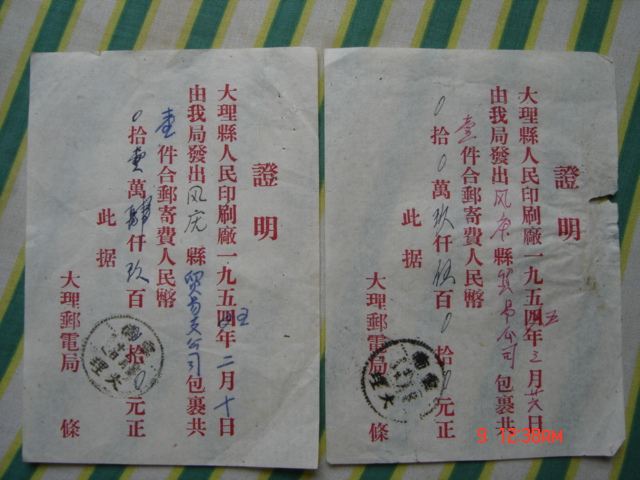 證明
大理縣人民印刷廠一九五五年二月十日
由我局發出凤庆縣貿易支公司包裹共
壹件合郵寄費人民幣
0拾壹萬肆仟玖百0拾0元正
此据
大理郵電局 條
郵電
大理
證明
大理縣人民印刷廠一九五五年三月廿六日
由我局發出凤庆縣貿易公司包裹共
壹件合郵寄費人民幣
0拾0萬玖仟伍百0拾0元正
此据
大理郵電局 條
郵電
大理
9 12:38AM